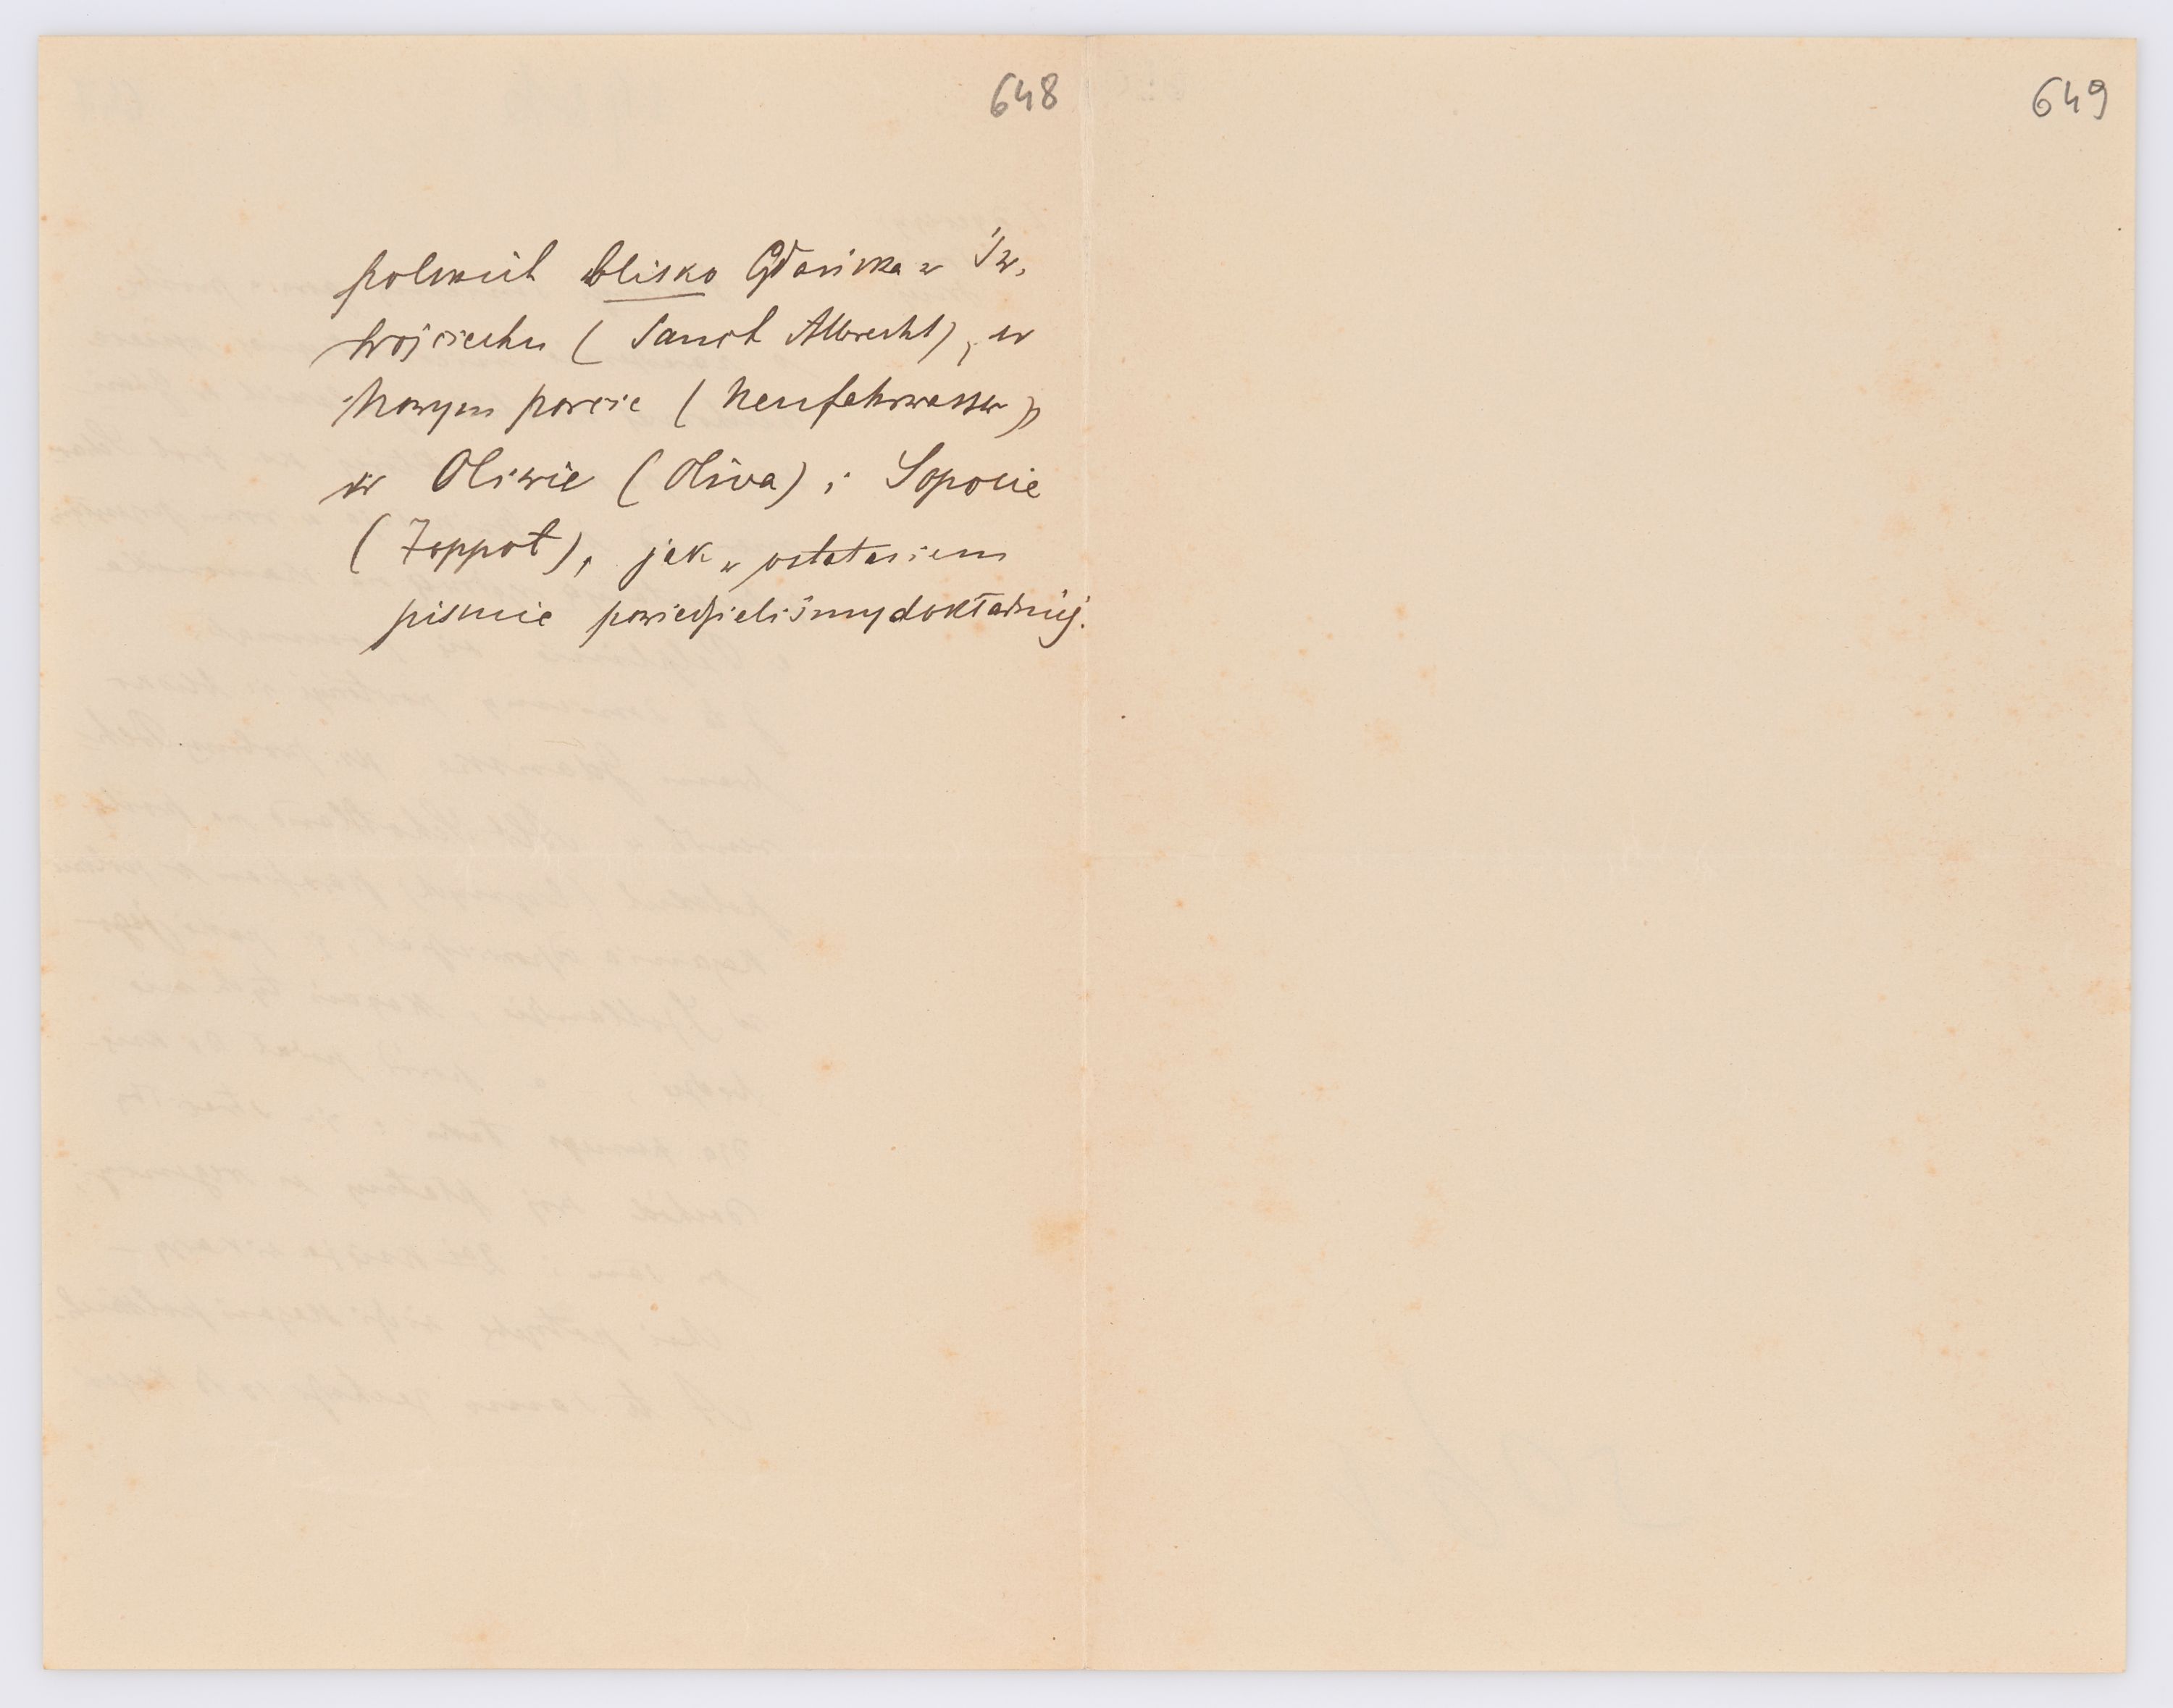 648
649
polskich blisko Gdańska w Św.
Wojciechu (Sanct Albrecht), w
Nowym porcie (Neufahrwasser)
w Oliwie (Oliva) i Sopocie
(Zoppot), jak w ostatniem
piśmie powiedzieliśmy dokładniej.